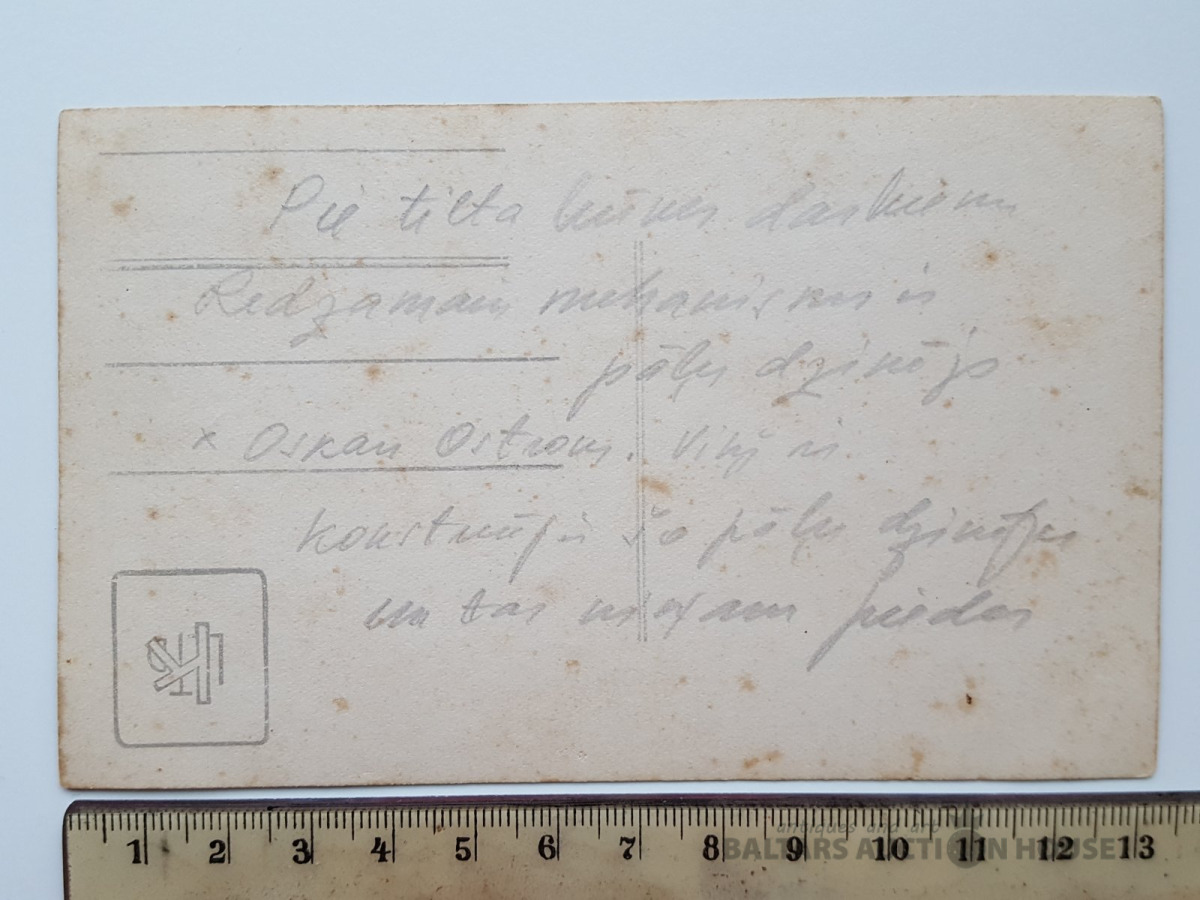 Pie tilta būves darbiem
Redzamais mehanisms ir
pāļu dzinējs
x Oskars Ostrovs. Viņš ir
konstruējis šo pāļu dzinēju
un tas viņam pieder
1 2 3 4 5 6 7 8 9 10 11 12 13
antiques and art
BALTARS AUCTION HOUSE